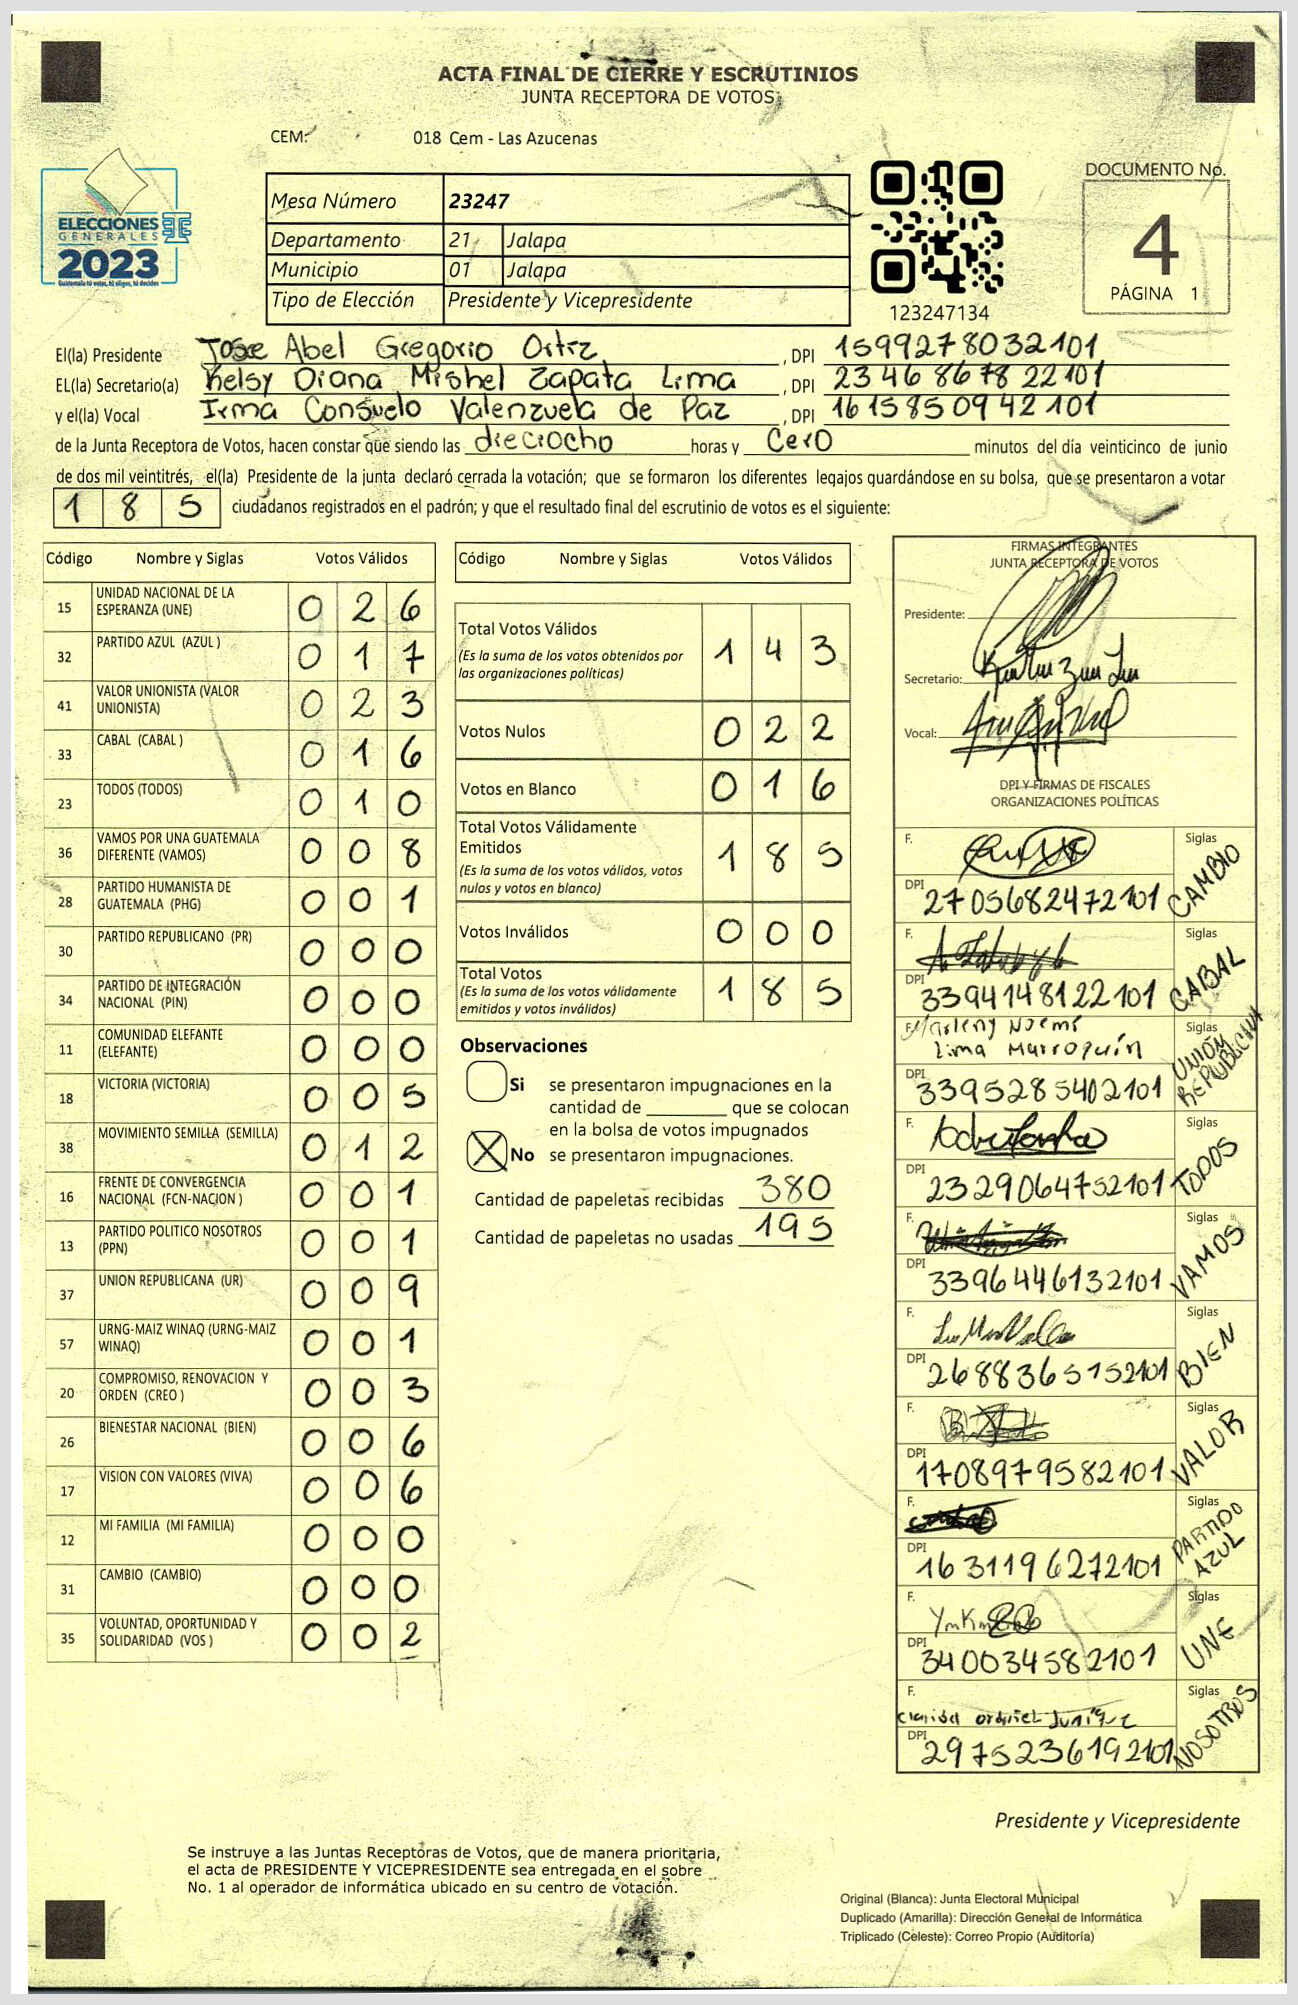 ACTA FINAL DE CIERRE Y ESCRUTINIOS
JUNTA RECEPTORA DE VOTOS
CEM: 018 Cem - Las Azucenas
ELECCIONES
GENERALES
2023
Guatemala tú votas, tú eliges, tú decides
Mesa Número 23247
Departamento 21 Jalapa
Municipio 01 Jalapa
Tipo de Elección Presidente y Vicepresidente
123247134
DOCUMENTO No.
4
PÁGINA 1
El(la) Presidente Jose Abel Gregorio Ortiz, DPI 1599278032101
EL(la) Secretario(a) Kelsy Diana Mishel Zapata Lima, DPI 2346867822101
y el(la) Vocal Irma Consuelo Valenzuela de Paz, DPI 1615850942101
de la Junta Receptora de Votos, hacen constar que siendo las dieciocho horas y Cero minutos del día veinticinco de junio
de dos mil veintitrés, el(la) Presidente de la junta declaró cerrada la votación; que se formaron los diferentes legajos guardándose en su bolsa, que se presentaron a votar
185 ciudadanos registrados en el padrón; y que el resultado final del escrutinio de votos es el siguiente:
Código Nombre y Siglas Votos Válidos
15 UNIDAD NACIONAL DE LA
ESPERANZA (UNE) 026
32 PARTIDO AZUL (AZUL ) 017
41 VALOR UNIONISTA (VALOR
UNIONISTA) 023
33 CABAL (CABAL ) 016
23 TODOS (TODOS) 010
36 VAMOS POR UNA GUATEMALA
DIFERENTE (VAMOS) 008
28 PARTIDO HUMANISTA DE
GUATEMALA (PHG) 001
30 PARTIDO REPUBLICANO (PR) 000
34 PARTIDO DE INTEGRACIÓN
NACIONAL (PIN) 000
11 COMUNIDAD ELEFANTE
(ELEFANTE) 000
18 VICTORIA (VICTORIA) 005
38 MOVIMIENTO SEMILLA (SEMILLA) 012
16 FRENTE DE CONVERGENCIA
NACIONAL (FCN-NACION ) 001
13 PARTIDO POLITICO NOSOTROS
(PPN) 001
37 UNION REPUBLICANA (UR) 009
57 URNG-MAIZ WINAQ (URNG-MAIZ
WINAQ) 001
20 COMPROMISO, RENOVACION Y
ORDEN (CREO ) 003
26 BIENESTAR NACIONAL (BIEN) 006
17 VISION CON VALORES (VIVA) 006
12 MI FAMILIA (MI FAMILIA) 000
31 CAMBIO (CAMBIO) 000
35 VOLUNTAD, OPORTUNIDAD Y
SOLIDARIDAD (VOS ) 002
Código Nombre y Siglas Votos Válidos
Total Votos Válidos 143
(Es la suma de los votos obtenidos por
las organizaciones políticas)
Votos Nulos 022
Votos en Blanco 016
Total Votos Válidamente
Emitidos 185
(Es la suma de los votos válidos, votos
nulos y votos en blanco)
Votos Inválidos 000
Total Votos 185
(Es la suma de los votos válidamente
emitidos y votos inválidos)
Observaciones
Si se presentaron impugnaciones en la
cantidad de ________ que se colocan
en la bolsa de votos impugnados
X No se presentaron impugnaciones.
Cantidad de papeletas recibidas 380
Cantidad de papeletas no usadas 195
FIRMAS INTEGRANTES
JUNTA RECEPTORA DE VOTOS
Presidente:
Secretario:
Vocal:
DPI Y FIRMAS DE FISCALES
ORGANIZACIONES POLÍTICAS
F. Siglas CAMBIO
DPI 2705682472101
F. Siglas CABAL
DPI 3394148122101
F. Marleny Noemí
Lima Marroquín
Siglas UNIÓN REPUBLICANA
DPI 3395285402101
F. Siglas TODOS
DPI 2329064752101
F. Siglas VAMOS
DPI 3396446132101
F. Siglas BIEN
DPI 2688365152101
F. Siglas VALOR
DPI 1708979582101
F. Siglas PARTIDO AZUL
DPI 1631196272101
F. Siglas UNE
DPI 340034582101
F. Siglas NOSOTROS
DPI 2975236192101
Presidente y Vicepresidente
Se instruye a las Juntas Receptoras de Votos, que de manera prioritaria,
el acta de PRESIDENTE Y VICEPRESIDENTE sea entregada en el sobre
No. 1 al operador de informática ubicado en su centro de votación.
Original (Blanca): Junta Electoral Municipal
Duplicado (Amarilla): Dirección General de Informática
Triplicado (Celeste): Correo Propio (Auditoría)